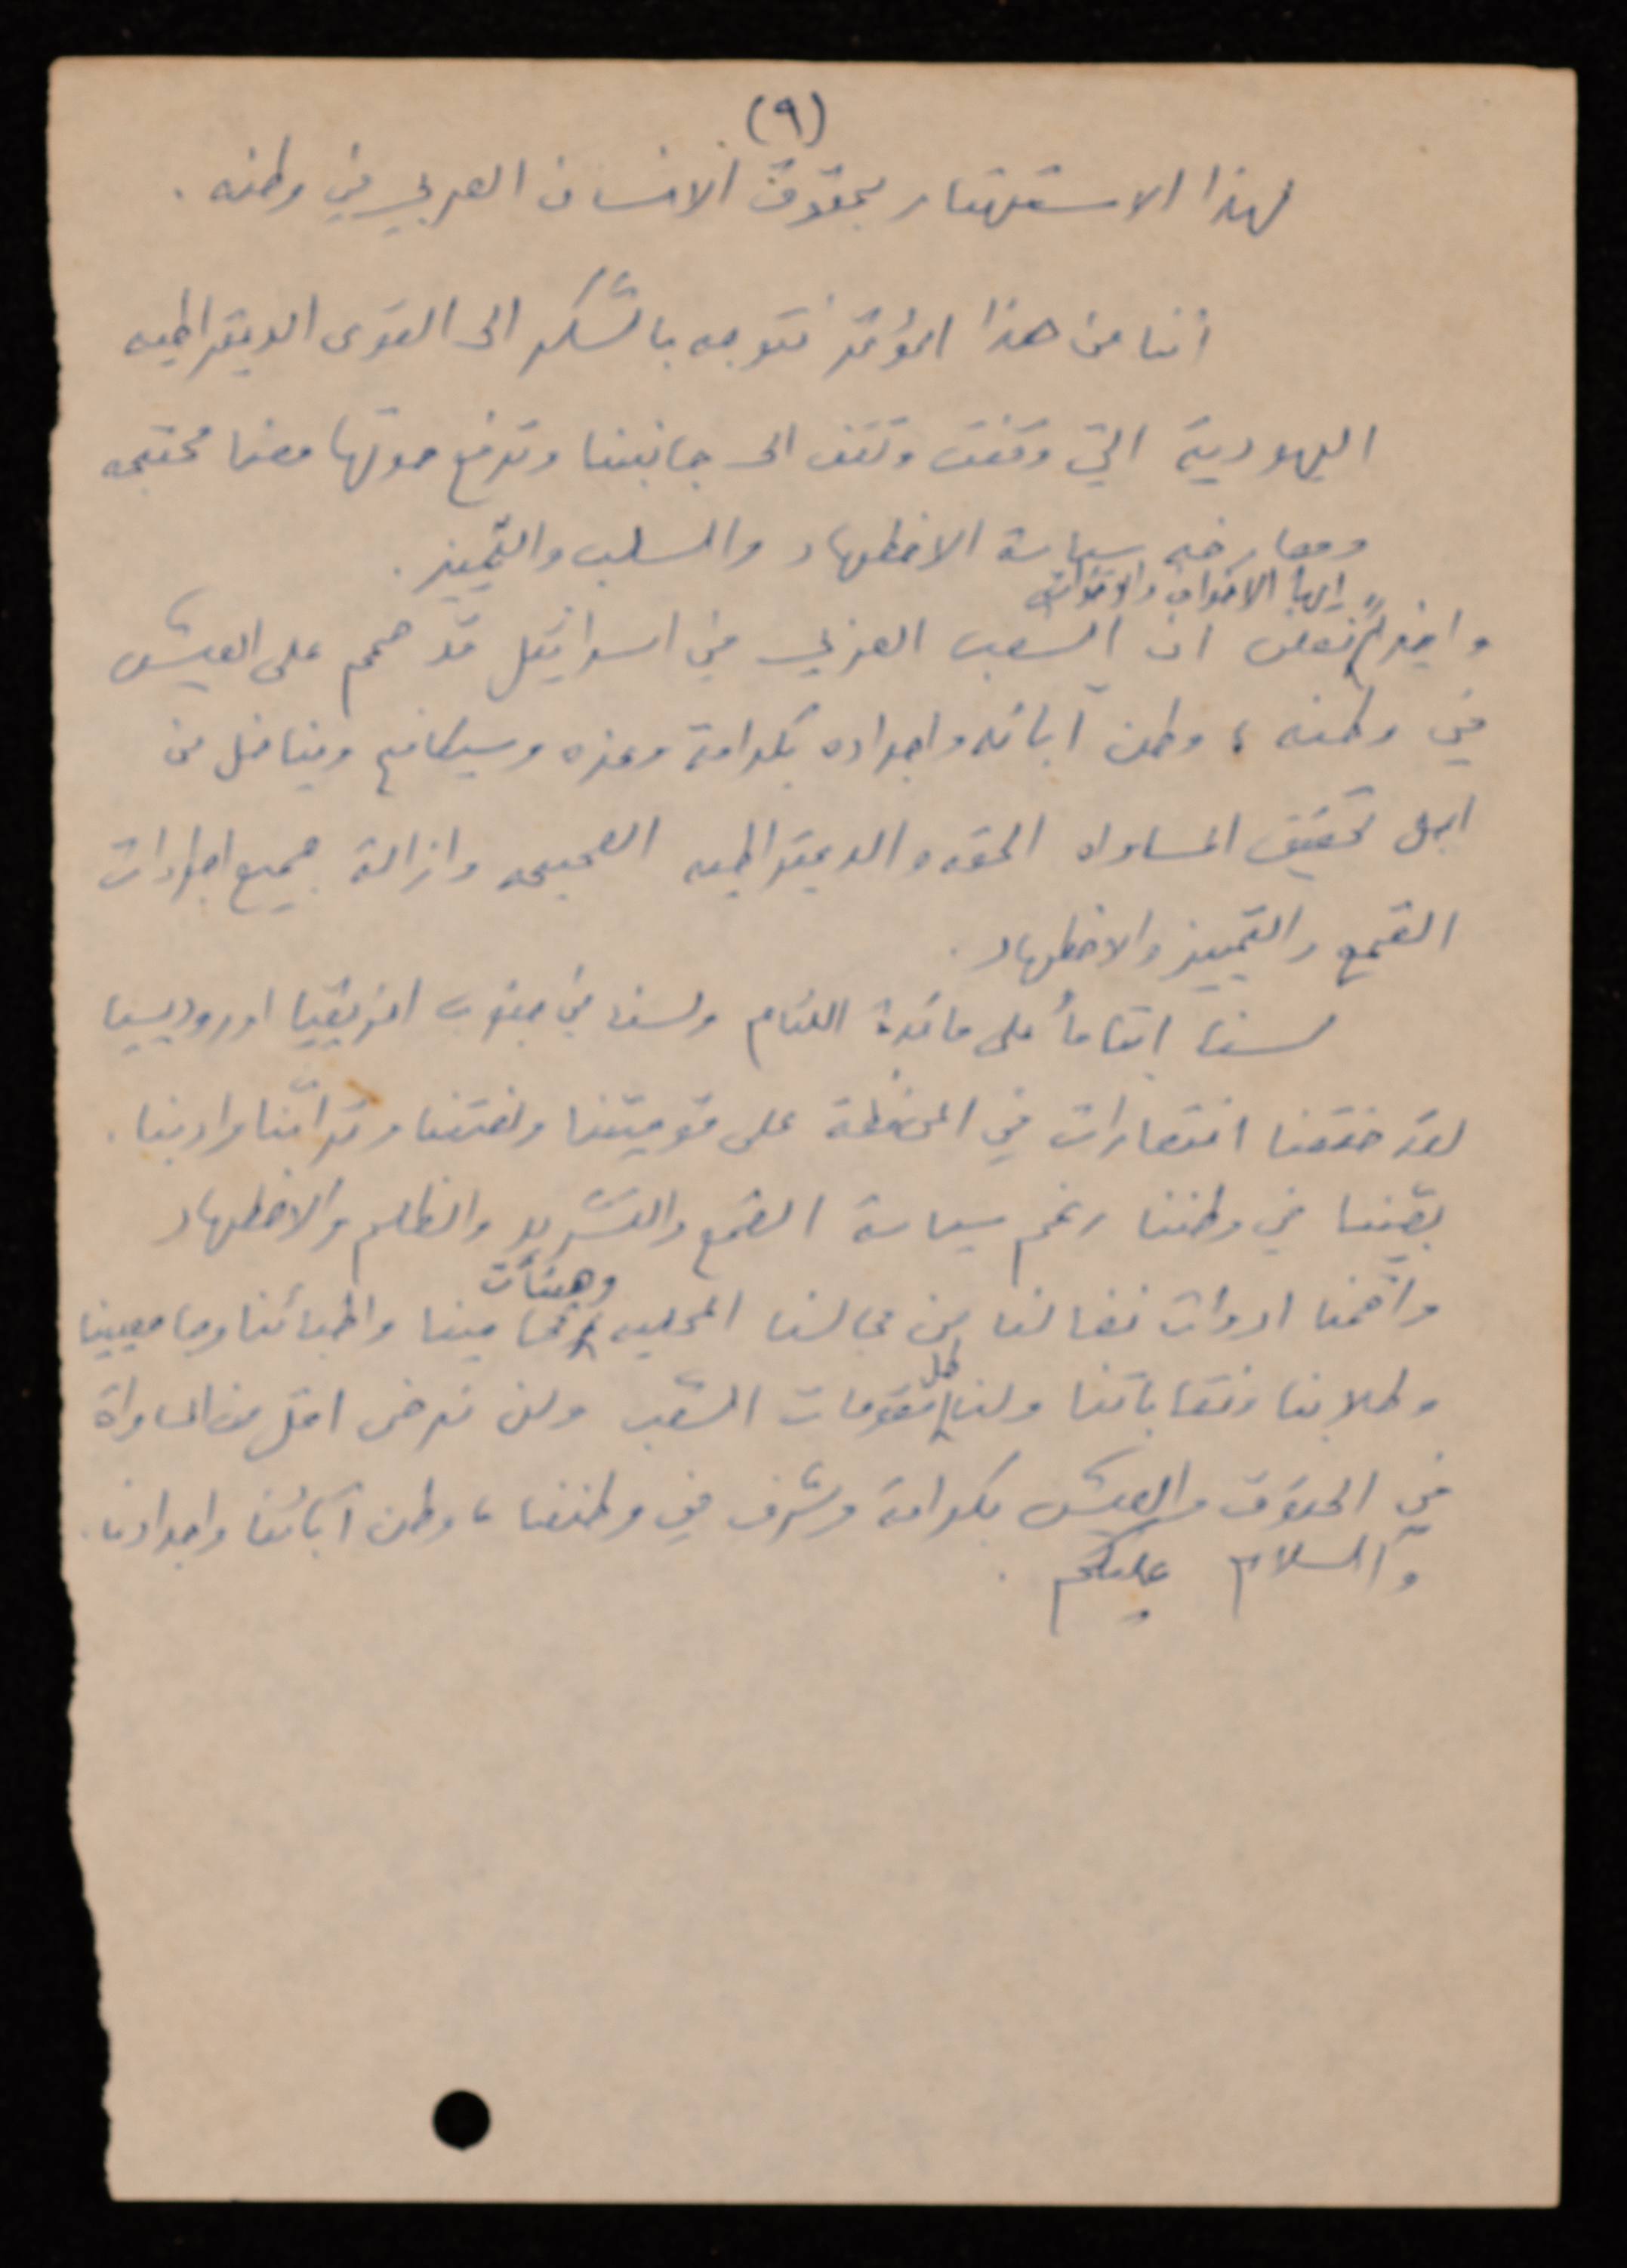 (٩)
لهذا الاستهتار بحقوق الانسان العربي في وطنه .
اننا من هذا المؤتمر نتوجه بالشكر الى القوى الديمقراطيه
اليهودية التي وقفت وتقف الى جانبنا وترفع صوتها معنا محتجه
ومعارضه سياسة الاضطهاد والسلب والتمييز .
ايها الاخوان والاخوات
واخيراً نعلن ان الشعب العربي في اسرائيل قد صمم على العيش
في وطنه ، وطن آبائه واجداده بكرامة وعزه وسيكافح ويناضل من
اجل تحقيق المساواه الحقه والديمقراطيه الصحيحه وازالة جميع اجراءات
القمع والتمييز والاضطهاد .
لسنا ايتاماً على مائدة اللئام ولسنا في جنوب افريقيا اوروديسيا
لقد حققنا انتصارات في المحافظة على قوميتنا ولغتنا وتراثنا وادبنا .
بقينا في وطننا رغم سياسة القمع والتشريد والظلم والاضطهاد
وهيئات
واقمنا ادوات نضالنا من مجالسنا المحليه محامينا واطبائنا وجامعيينا
كل
وطلابنا ونقاباتنا ولنا مقومات الشعب ولن نرضى اقل من المساواة
في الحقوق والعيش بكرامة وشرف في وطننا ، وطن آبائنا واجدادنا .
والسلام عليكم .